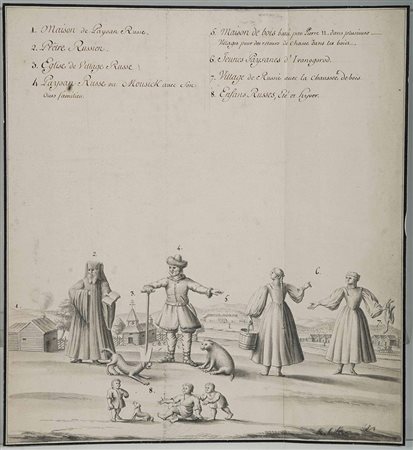 1. Maison de Paysan Russe.
2. Prêtre Russien.
3. Eglise de Village Russe
4. Paysan Russe ou Mousick avec Son
Ours familier.
5. Maison de bois bati par Pierre II. dans plusieurs
Villages pour des retours de Chasse dans les bois.
6. Jeunes Paysanes d'Ivanogorod.
7. Village de Russie avec la Chaussée de bois.
8. Enfans Russes, Eté et hyver.
2.
4.
6.
1.
3.
5.
7.
8.